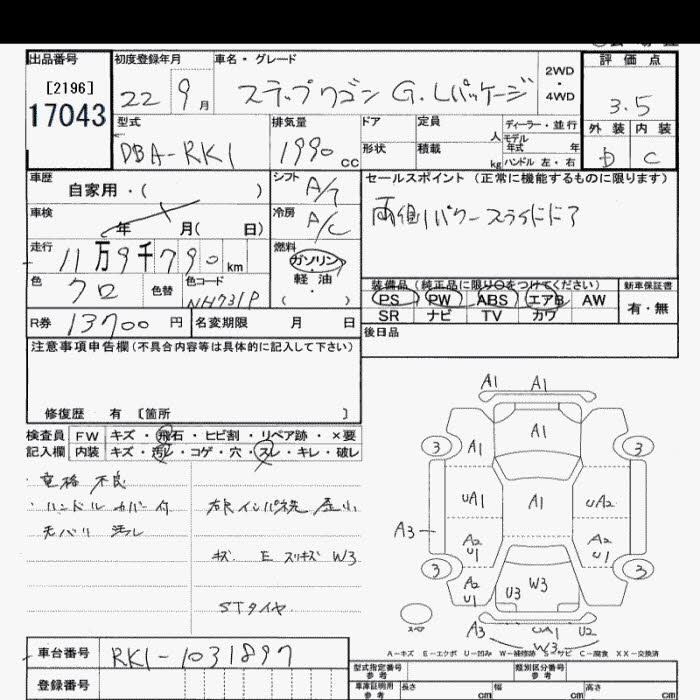 出品番号 初度登録年月 車名・グレード 評価点
[2196] 22 9月 ステップワゴン G.Lパッケージ 2WD・4WD 3.5
17043
型式 排気量 ドア 定員 人 ディーラー・並行 外装 内装
DBA-RK1 1990cc 形状 積載 kg モデル年式 年 ハンドル 左・右 D C
車歴 自家用・( ) シフト A/T セールスポイント(正常に機能するものに限ります)
車検 年 月( 日) 冷房 A/C 両側パワースライドドア
走行 11万9千790km 燃料 ガソリン・軽油( )
色 クロ 色替 色コード NH731P
装備品(純正品に限り○をつけてください) 新車保証書
PS PW ABS エアB AW 有・無
SR ナビ TV カワ
R券 13700円 名変期限 月 日
後日品
注意事項申告欄(不具合内容等は具体的に記入して下さい)
修復歴 有〔箇所 〕
検査員 FW キズ・飛石・ヒビ割・リペア跡・×要
記入欄 内装 キズ・汚レ・コゲ・穴・スレ・キレ・破レ
・ 不良
・ハンドルカバー付
キズ E スリキズ W3
STタイヤ
A1 A1
A1
3 A1 3
UA1 A1 UA2
A3 A2 U1 A2 U1
3 A2 U1 U3 W3 3
A3 UA1 U2
W3
A-キズ E-エクボ U-凹み W-補修跡 S-サビ C-腐食 XX-交換済
車台番号 RK1-1031897
登録番号
型式指定番号 参考 類別区分番号 参考
車庫証明用 参考 長さ cm 幅 cm 高さ cm